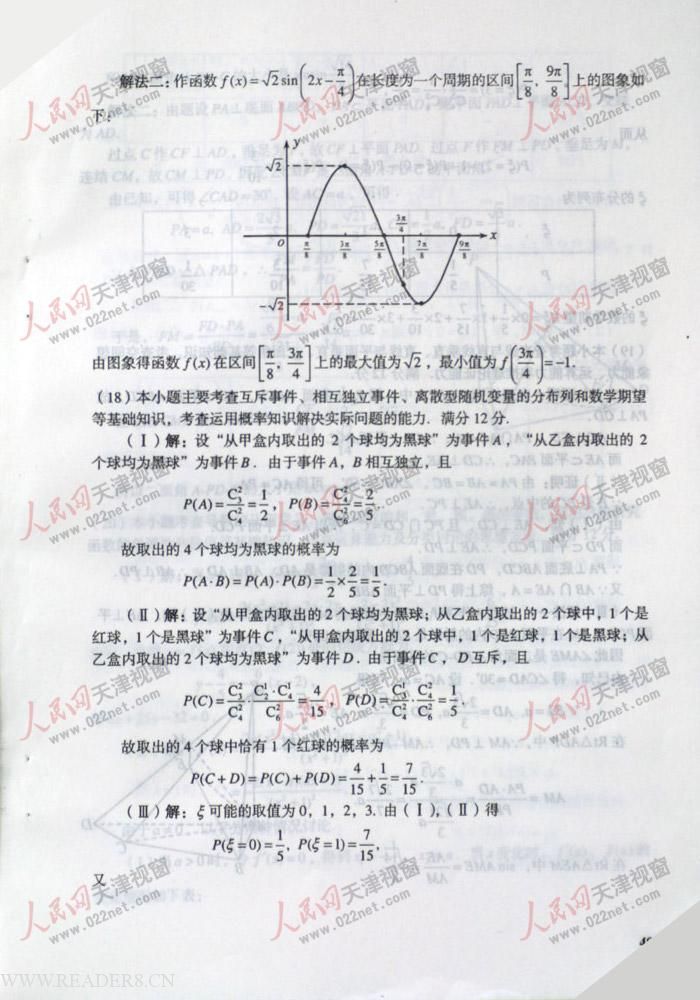 解法二：作函数 f(x)=√2 sin(2x-π/4) 在长度为一个周期的区间 [π/8, 9π/8] 上的图象如
下：
y
√2
3π/4
O π/8 3π/8 5π/8 7π/8 9π/8 x
-√2
由图象得函数 f(x) 在区间 [π/8, 3π/4] 上的最大值为 √2，最小值为 f(3π/4)=-1.
（18）本小题主要考查互斥事件、相互独立事件、离散型随机变量的分布列和数学期望
等基础知识，考查运用概率知识解决实际问题的能力. 满分 12 分.
（Ⅰ）解：设“从甲盒内取出的 2 个球均为黑球”为事件 A，“从乙盒内取出的 2
个球均为黑球”为事件 B. 由于事件 A，B 相互独立，且
P(A)=C₃²/C₄²=1/2，P(B)=C₄²/C₆²=2/5.
故取出的 4 个球均为黑球的概率为
P(A·B)=P(A)·P(B)=1/2×2/5=1/5.
（Ⅱ）解：设“从甲盒内取出的 2 个球均为黑球；从乙盒内取出的 2 个球中，1 个是
红球，1 个是黑球”为事件 C，“从甲盒内取出的 2 个球中，1 个是红球，1 个是黑球；从
乙盒内取出的 2 个球均为黑球”为事件 D. 由于事件 C，D 互斥，且
P(C)=C₃²/C₄²·C₂¹·C₄¹/C₆²=4/15，P(D)=C₃¹/C₄²·C₄²/C₆²=1/5.
故取出的 4 个球中恰有 1 个红球的概率为
P(C+D)=P(C)+P(D)=4/15+1/5=7/15.
（Ⅲ）解：ξ 可能的取值为 0，1，2，3. 由（Ⅰ），（Ⅱ）得
P(ξ=0)=1/5，P(ξ=1)=7/15，
又
人民网天津视窗
www.022net.com
WWW.READER8.CN